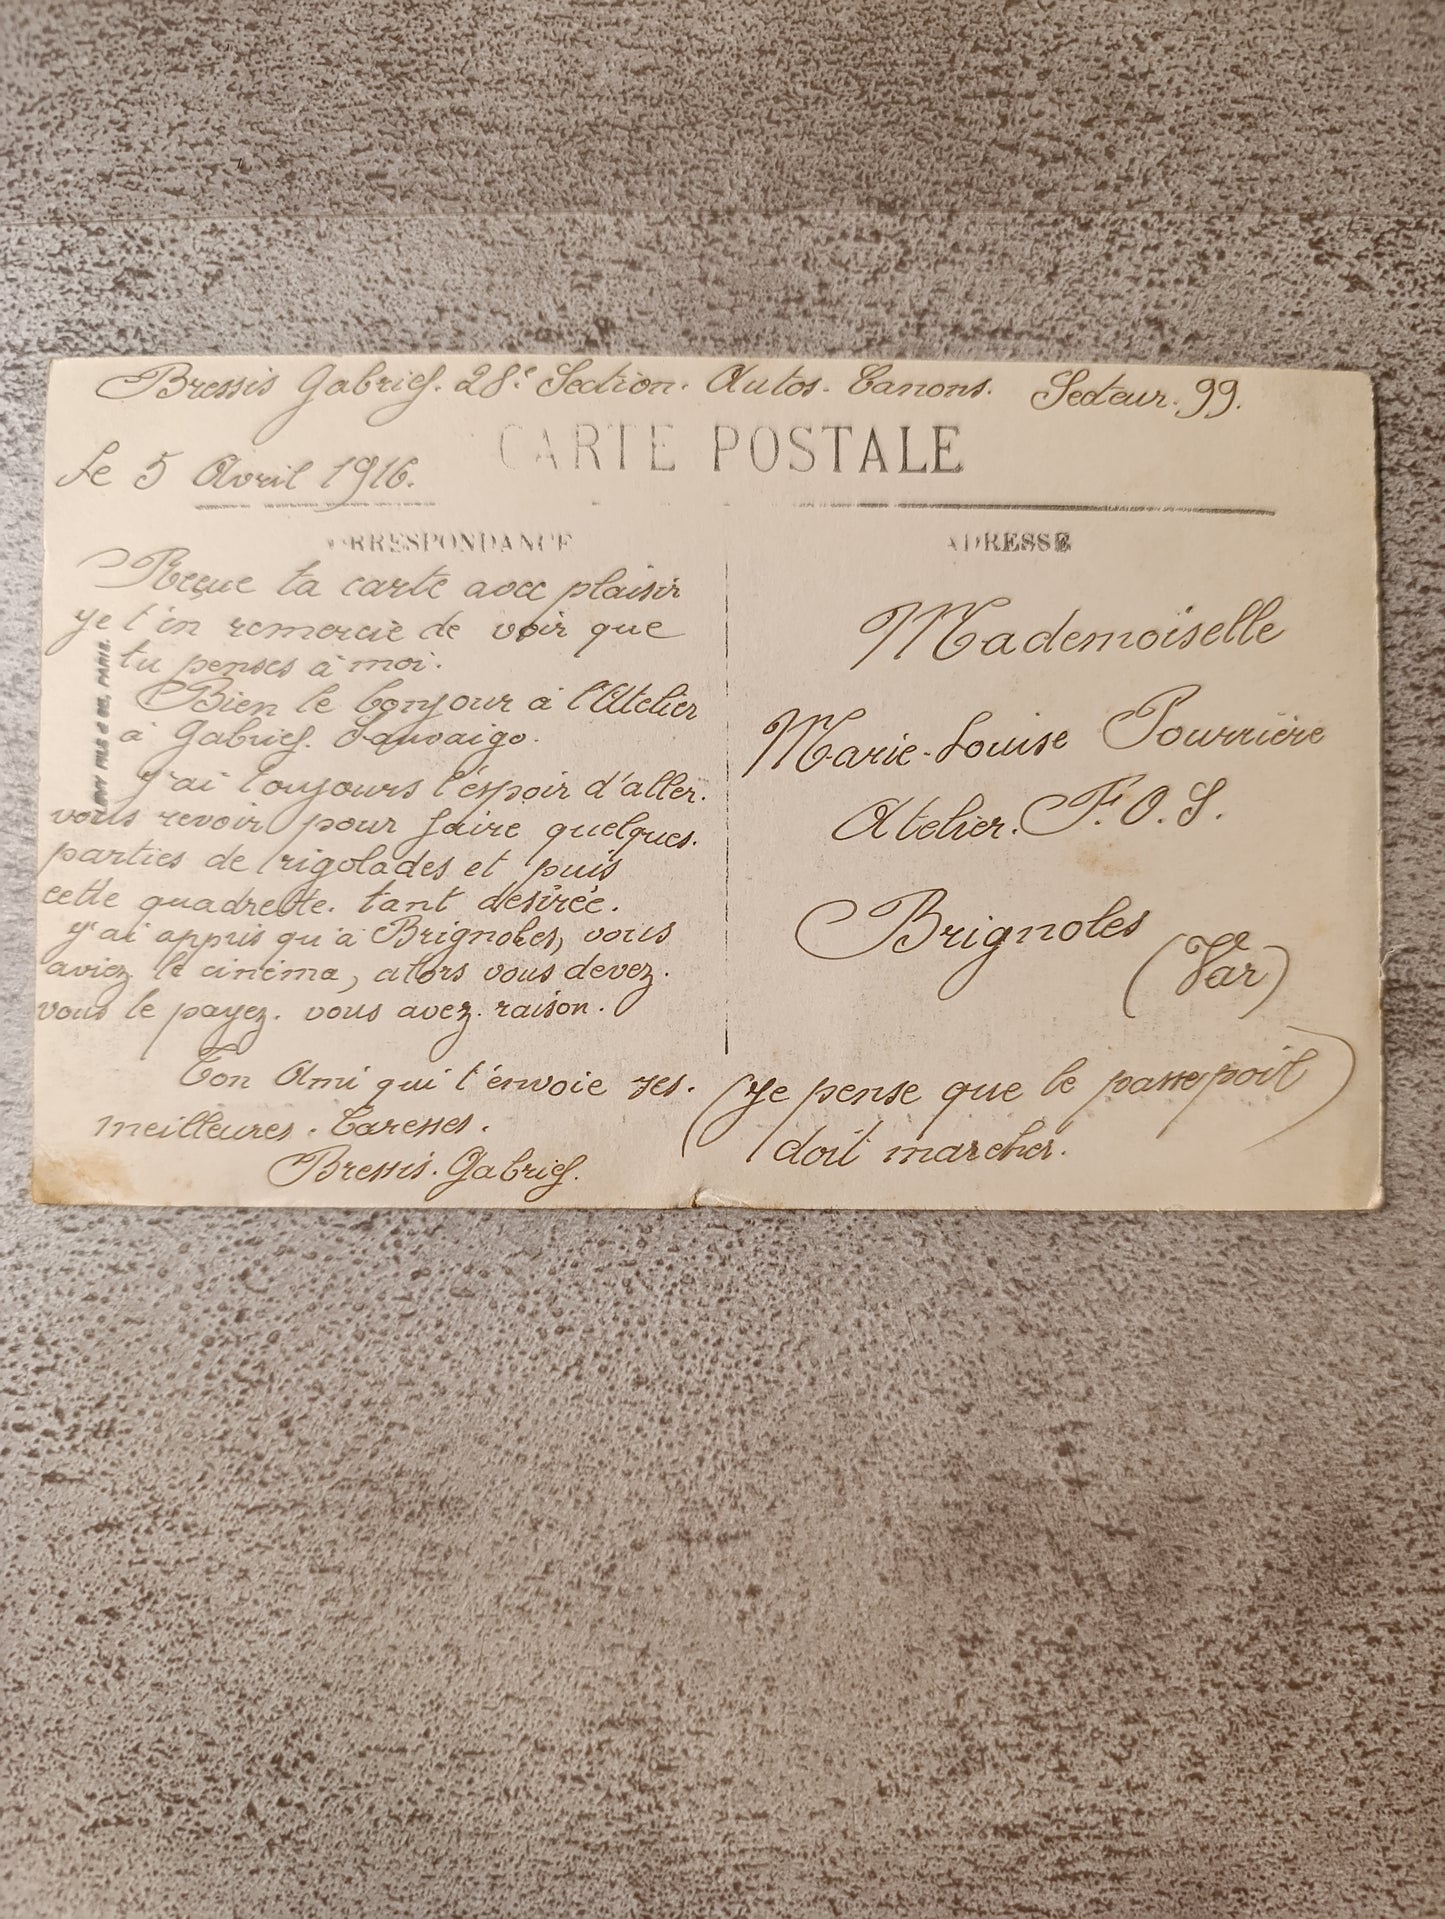 Bressis Gabriel. 28e Section. Autos. Canons. Secteur. 99.
CARTE POSTALE
Le 5 Avril 1916.
CORRESPONDANCE
ADRESSE
Reçue ta carte avec plaisir
je t'en remercie de voir que
tu penses à moi.
Bien le bonjour à l'Atelier
à Gabriel. Sauvaigo.
j'ai toujours l'éspoir d'aller.
vous revoir pour faire quelques.
parties de rigolades et puis
cette quadrette. tant désirée.
j'ai appris qu'à Brignoles, vous
aviez le cinéma, alors vous devez.
vous le payez. vous avez. raison.
Ton Ami qui t'envoie ses.
meilleures. Caresses.
Bressis. Gabriel.
LEVY FILS & CIE, PARIS.
Mademoiselle
Marie-Louise Pourrière
Atelier. F.O.S.
Brignoles
(Var)
(je pense que le passepoil)
doit marcher.